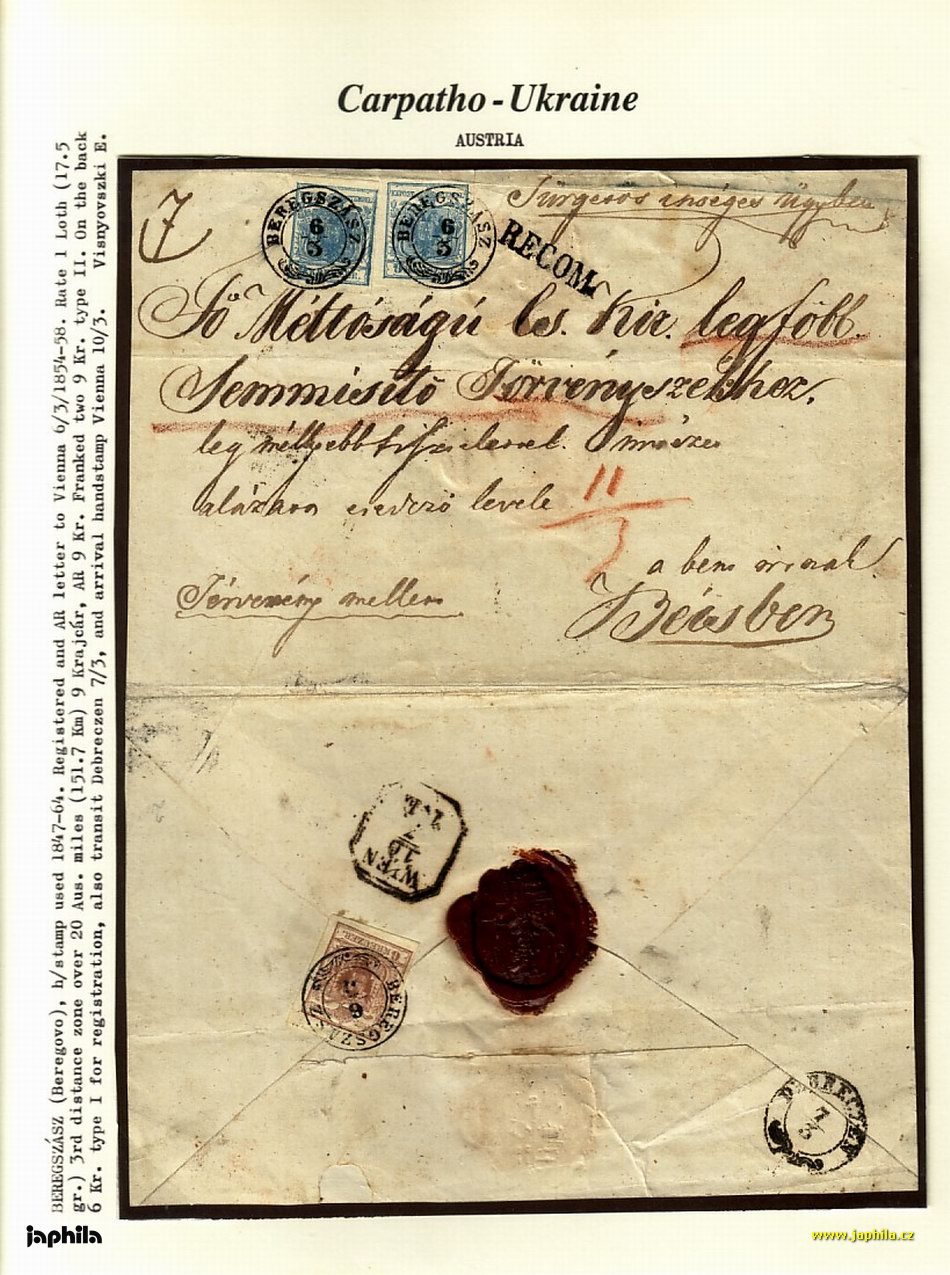 Carpatho - Ukraine
AUSTRIA
BEREGSZÁSZ (Beregovo), h/stamp used 1847-64. Registered and AR letter to Vienna 6/3/1854-58. Rate 1 Loth (17.5
gr.) 3rd distance zone over 20 Aus. miles (151.7 Km) 9 Krajcár, AR 9 Kr. Franked two 9 Kr. type II. On the back
6 Kr. type I for registration, also transit Debreczen 7/3, and arrival handstamp Vienna 10/3. Visnyovszki E.
BEREGSZÁSZ
6
3
BEREGSZÁSZ
6
3
RECOM.
Sürgetős ügyben
Fő Méltóságú Cs. Kir. legfőbb.
Semmisitő Törvényszékhez,
alázatos levele
11
3
a benn
Törvény mellett
Bécsben
WIEN
10
3
KREUZER
BEREGSZÁSZ
6
3
DEBRECZEN
7
3
japhila
www.japhila.cz